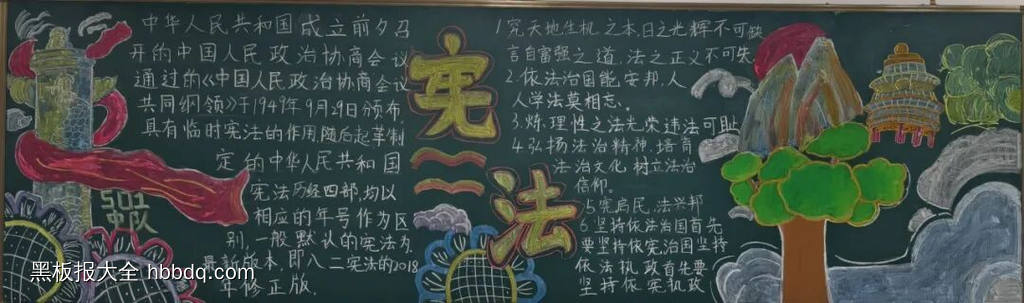 中华人民共和国成立前夕召
开的中国人民政治协商会议
通过的《中国人民政治协商会议
共同纲领》于1949年9月29日颁布,
具有临时宪法的作用,随后起草制
定的中华人民共和国
宪法历经四部,均以
相应的年号作为区
别,一般默认的宪法为
最新版本,即八二宪法的2018
年修正版.
宪
法
1.究天地生机之本,日之光辉不可缺
言自富强之道,法之正义不可失
2.依法治国能安邦,人
人学法莫相忘.
3.炼理性之法光荣违法可耻
4.弘扬法治精神,培育
法治文化 树立法治
信仰.
5.宪启民,法兴邦
6.坚持依法治国首先
要坚持依宪治国坚持
依法执政首先要
坚持依宪执政
黑板报大全 hbbdq.com